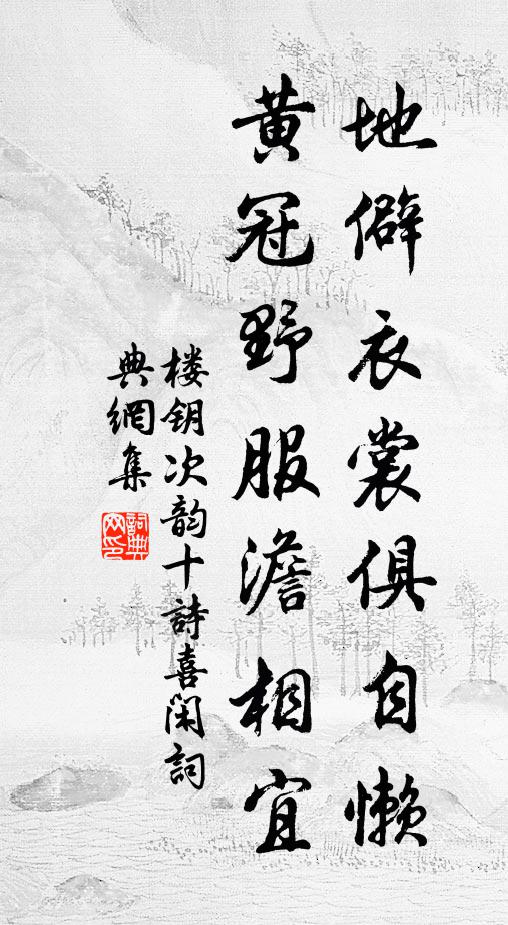 地僻衣裳俱自懒
黄冠野服澹相宜
楼钥次韵十詩喜闲詞
典網集
詞典网印